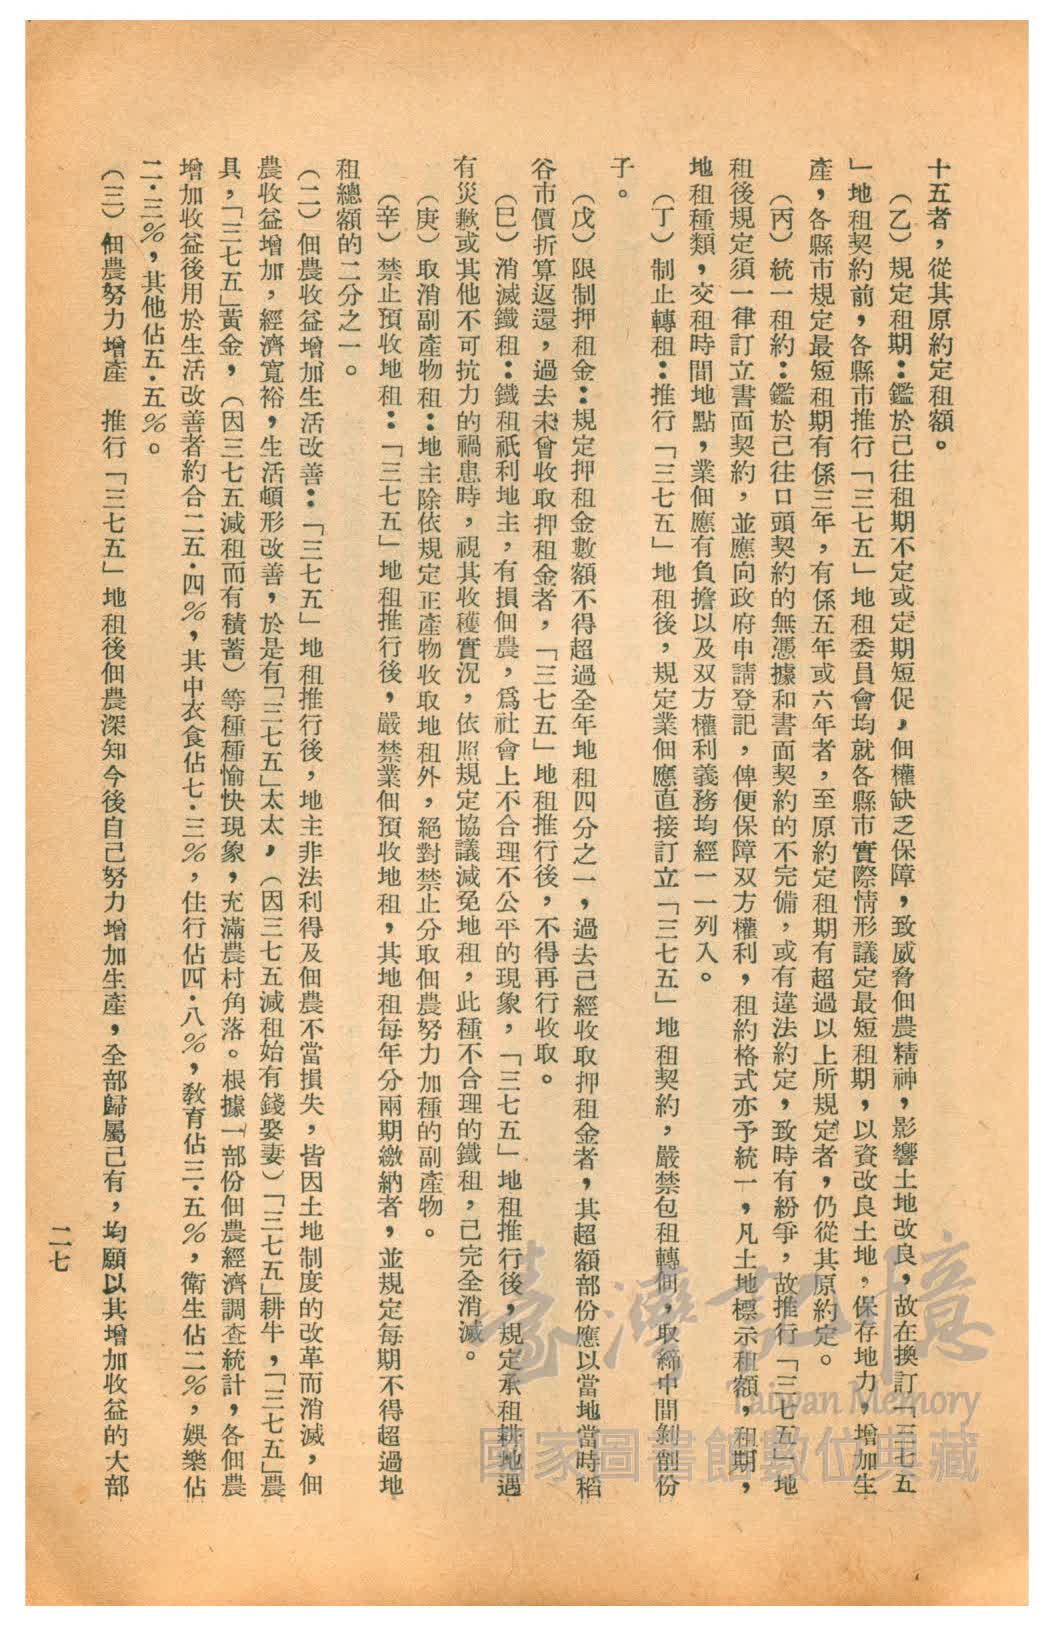 十五者，從其原約定租額。
（乙）規定租期：鑑於已往租期不定或定期短促，佃權缺乏保障，致威脅佃農精神，影響土地改良，故在換訂「三七五
」地租契約前，各縣市推行「三七五」地租委員會均就各縣市實際情形議定最短租期，以資改良土地，保存地力，增加生
產，各縣市規定最短租期有係三年，有係五年或六年者，至原約定租期有超過以上所規定者，仍從其原約定。
（丙）統一租約：鑑於已往口頭契約的無憑據和書面契約的不完備，或有違法約定，致時有紛爭，故推行「三七五」地
租後規定須一律訂立書面契約，並應向政府申請登記，俾便保障双方權利，租約格式亦予統一，凡土地標示租額，租期，
地租種類，交租時間地點，業佃應有負擔以及双方權利義務均經一一列入。
（丁）制止轉租：推行「三七五」地租後，規定業佃應直接訂立「三七五」地租契約，嚴禁包租轉佃，取締中間剝削份
子。
（戊）限制押租金：規定押租金數額不得超過全年地租四分之一，過去已經收取押租金者，其超額部份應以當地當時稻
谷市價折算返還，過去未曾收取押租金者，「三七五」地租推行後，不得再行收取。
（巳）消滅鐵租：鐵租祇利地主，有損佃農，爲社會上不合理不公平的現象，「三七五」地租推行後，規定承租耕地遇
有災歉或其他不可抗力的禍患時，視其收穫實況，依照規定協議減免地租，此種不合理的鐵租，已完全消滅。
（庚）取消副產物租：地主除依規定正產物收取地租外，絕對禁止分取佃農努力加種的副產物。
（辛）禁止預收地租：「三七五」地租推行後，嚴禁業佃預收地租，其地租每年分兩期繳納者，並規定每期不得超過地
租總額的二分之一。
（二）佃農收益增加生活改善：「三七五」地租推行後，地主非法利得及佃農不當損失，皆因土地制度的改革而消滅，佃
農收益增加，經濟寬裕，生活頓形改善，於是有「三七五」太太，（因三七五減租始有錢娶妻）「三七五」耕牛，「三七五」農
具，「三七五」黃金，（因三七五減租而有積蓄）等種種愉快現象，充滿農村角落。根據一部份佃農經濟調查統計，各佃農
增加收益後用於生活改善者約合二五·四％，其中衣食佔七·三％，住行佔四·八％，教育佔三·五％，衛生佔二％，娛樂佔
二·三％，其他佔五·五％。
（三）佃農努力增產　推行「三七五」地租後佃農深知今後自己努力增加生產，全部歸屬己有，均願以其增加收益的大部
二七
臺灣記憶
Taiwan Memory
國家圖書館數位典藏